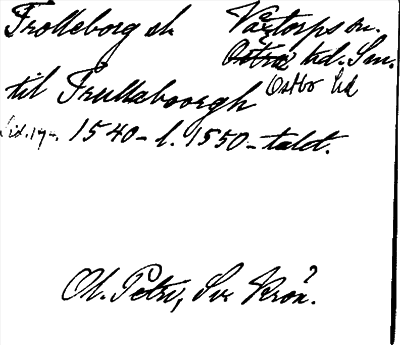 Trolleborg el. Vartorps sn.
Östra hd. Sm.
Östbo hd
til Trullaboorgh
Sid. 19. 1540- l. 1550-talet.
Ol. Petri, Sv. Krön.?